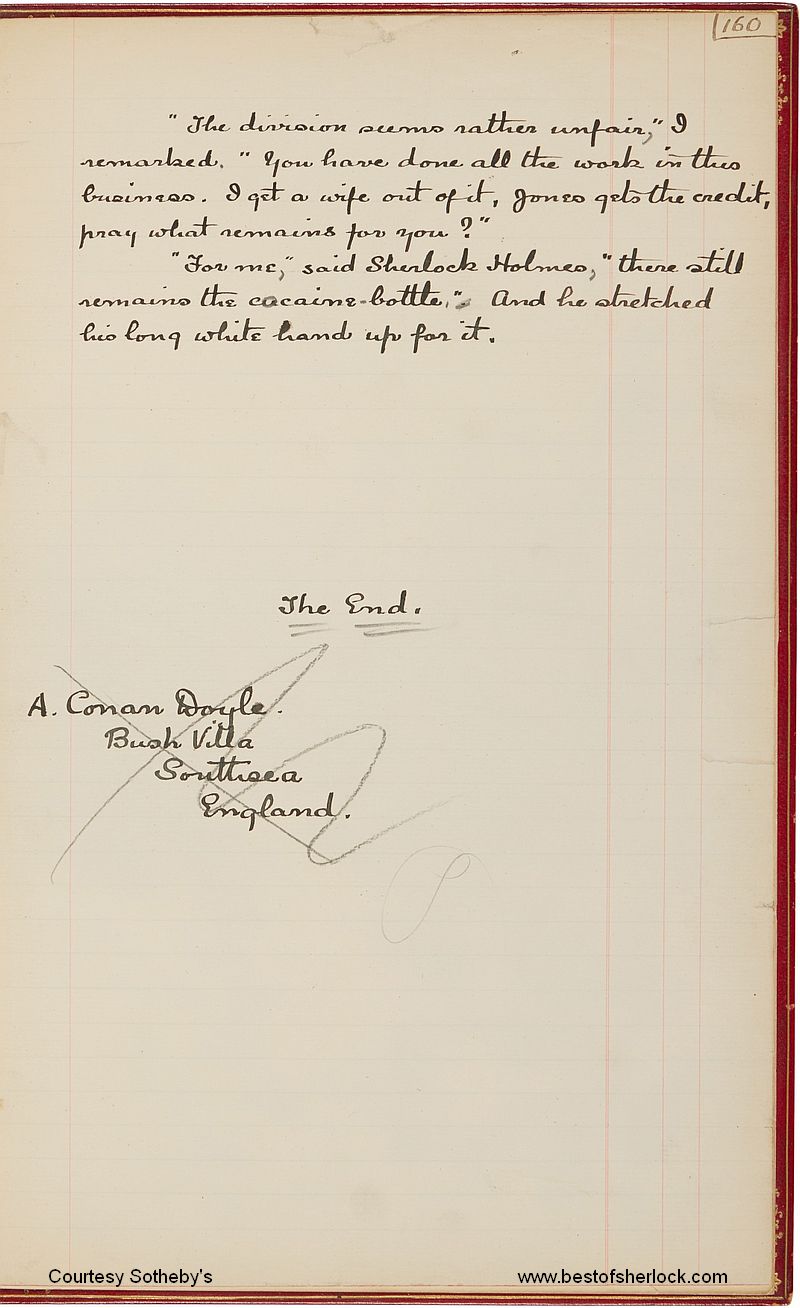 160
" The division seems rather unfair," I
remarked. " You have done all the work in this
business. I get a wife out of it, Jones gets the credit,
pray what remains for you ?"
"For me," said Sherlock Holmes, "there still
remains the cocaine-bottle." And he stretched
his long white hand up for it.
The End.
A. Conan Doyle.
Bush Villa
Southsea
England.
Courtesy Sotheby's
www.bestofsherlock.com